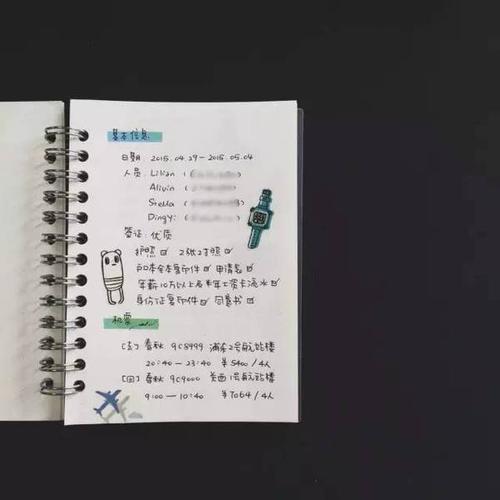 基本信息
日期 2015.04.29-2015.05.04
人员 Lilian (
Alivin (
Stella (
Dingyi (
签证:优质
护照☑ 2张2寸照☑
户口本全本复印件☑ 申请表☑
年薪10万以上者半年工资卡流水☑
身份证复印件☑ 同意书☑
机票
[去] 春秋 9C8999 浦东2号航站楼
20:40-23:40 ¥5400/4人
[回] 春秋 9C9000 关西1号航站楼
9:00-10:40 ¥7064/4人